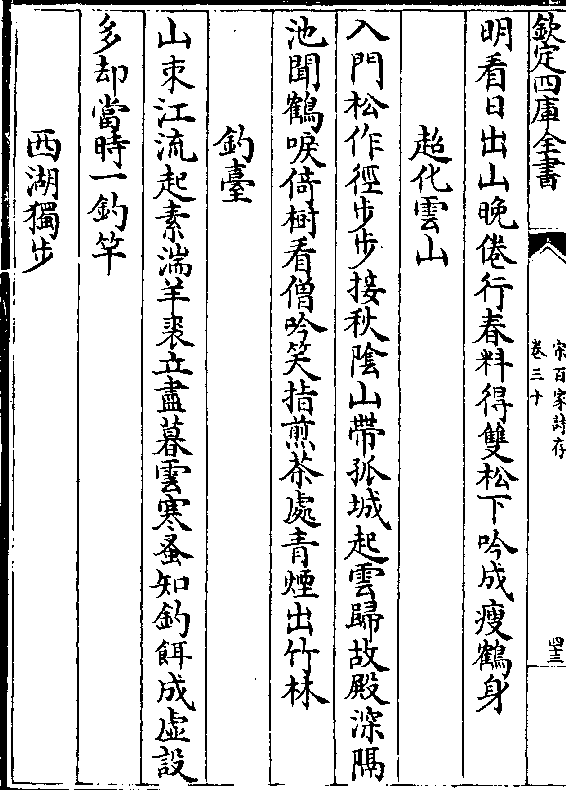 欽定四庫全書
宋百家詩存
卷三十
四三
明看日出山晚倦行春料得雙松下吟成瘦鶴身
超化雲山
入門松作徑步步接秋陰山帶孤城起雲歸故殿深隔
池聞鶴唳倚樹看僧吟笑指煎茶處青煙出竹林
釣臺
山束江流起素湍羊裘立盡暮雲寒蚤知釣餌成虛設
多却當時一釣竿
西湖獨步